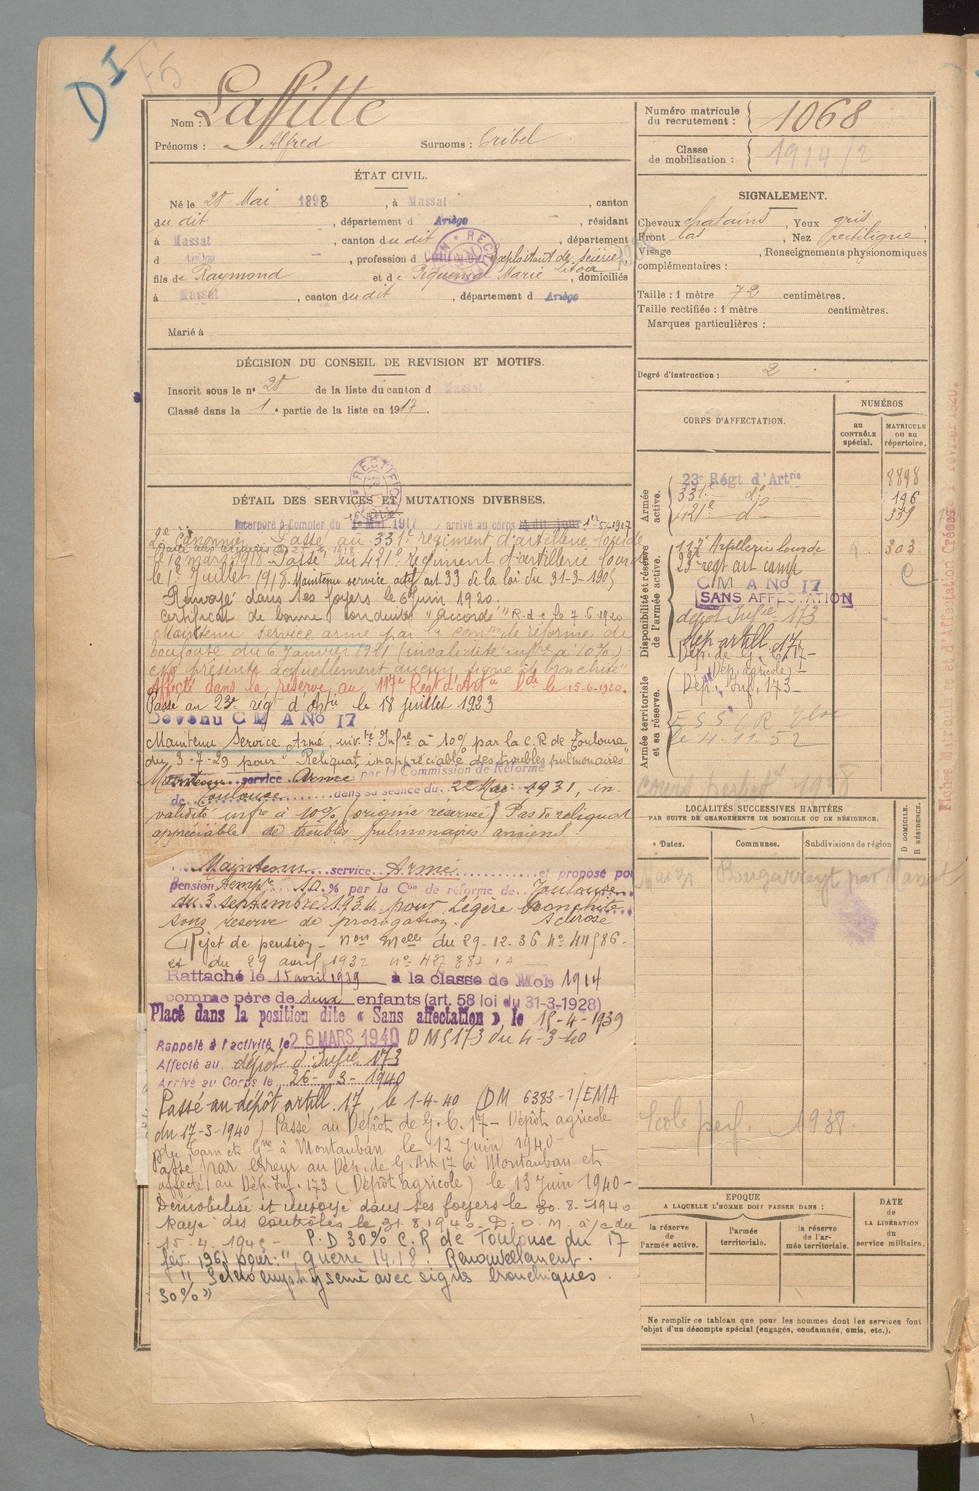 D I
Laffitte
Nom :
Prénoms : Alfred Surnoms : Cribel
ÉTAT CIVIL.
Né le 28 Mai 1898, à Massat, canton
du dit, département d Ariège, résidant
à Massat, canton du dit, département
d Ariège, profession d exploitant de scierie
fils de Raymond et de Piquemal Marie, domiciliés
à Massat, canton du dit, département d Ariège
Marié à
DÉCISION DU CONSEIL DE REVISION ET MOTIFS.
Inscrit sous le nº 28 de la liste du canton d Massat
Classé dans la 1e partie de la liste en 1917.
DÉTAIL DES SERVICES ET MUTATIONS DIVERSES.
Incorporé à Compter du 1er Mai 1917 arrivé au corps le dit jour 1er-5-1917
2e Canonnier. Passé au 331e régiment d'artillerie
le 18 mars 1918. Passé au 421e régiment d'artillerie lourde
le 1er Juillet 1918. Maintenu service actif art 33 de la loi du 31-3-1905
Renvoyé dans ses foyers le 6 juin 1920.
Certificat de bonne conduite "accordé" R.d.c. le 7-6-1920
Maintenu service armé par la comon de réforme de
Toulouse du 6 Janvier 1921 (invalidité infre à 10%)
"Ne présente actuellement aucun signe de bronchite"
Affecté dans la réserve au 117e Régt d'Artie Lde le 15-6-1920.
Passé au 23e rég d'Artie le 18 juillet 1923
Devenu C M A No 17
Maintenu Service Armé, invté Infre à 10% par la C.R de Toulouse
du 3-7-29 pour "Reliquat inappréciable des troubles pulmonaires"
Maintenu service Armé par la Commission de Réforme
de Toulouse dans sa séance du 22 Mai 1931, in-
validité infre à 10% (origine réservée) Pas de reliquat
appréciable de troubles pulmonaires anciens
Maintenu service Armé et proposé pour
pension tempre 10 % par la Con de réforme de Toulouse
du 3 septembre 1934 pour Légère bronchite
sous réserve de prorogation. Sclérose
Rejet de pension - Non Melle du 29-12-36 nº 411586-
et du 29 avril 1932
Rattaché le 15 avril 1939 à la classe de Mob 1914
comme père de deux enfants (art. 58 loi du 31-3-1928)
Placé dans la position dite « Sans affectation », le 15-4-1939
Rappelé à l'activité le 26 MARS 1940 DM 173 du 4-3-40
Affecté au dépôt d'Infie 173
Arrivé au Corps le 26-3-1940
Passé au dépôt artill. 17 le 1-4-40 (DM 6383-1/EMA
du 17-3-1940) Passé au Dépôt de G. C. 17 - Dépôt agricole
du Tarn et Gne à Montauban le 12 Juin 1940-
Passé par erreur au Dép. de G. Art. 17 à Montauban et
affecté au Dép. Inf. 173 (Dépôt agricole) le 13 Juin 1940-
Démobilisé et renvoyé dans ses foyers le 30.8.1940
Rayé des contrôles le 31.8.1940. D.O.M. à/c du
P.D 30% C.R de Toulouse du 17
fév. 196 pour: "guerre 14.18. Renouvellement.
"Scléro emphysème avec signes bronchiques.
30%"
Numéro matricule
du recrutement : 1068
Classe
de mobilisation : 1914/2
SIGNALEMENT.
Cheveux chatains, Yeux gris
Front bas, Nez rectiligne,
Visage , Renseignements physionomiques
complémentaires :
Taille : 1 mètre 72 centimètres.
Taille rectifiée : 1 mètre centimètres.
Marques particulières :
Degré d'instruction : 2
CORPS D'AFFECTATION.
NUMÉROS
au CONTRÔLE spécial.
MATRICULE OU AU répertoire.
Armée active.
23e Régt d'Artrie 8898
331e do 196
421e do 399
Disponibilité et réserve de l'armée active.
117e Artillerie lourde 303
23e regt art camp
C M A No 17
SANS AFFECTATION
dépôt Infie 173
dép artill 17
Dép. de G. C. 17-
(Dép. agricole)
Dép. Inf. 173-
Armée territoriale et sa réserve.
le 4.11.52
cours perfect 1938
LOCALITÉS SUCCESSIVES HABITÉES
PAR SUITE DE CHANGEMENTS DE DOMICILE OU DE RÉSIDENCE.
Dates. Communes. Subdivisions de région
D DOMICILE. R RÉSIDENCE.
Mai 31 par Massat
Ecole perf. 1938.
EPOQUE
A LAQUELLE L'HOMME DOIT PASSER DANS :
la réserve de l'armée active.
l'armée territoriale.
la réserve de l'armée territoriale.
DATE de LA LIBÉRATION du service militaire.
Ne remplir ce tableau que pour les hommes dont les services font
l'objet d'un décompte spécial (engagés, condamnés, omis, etc.).